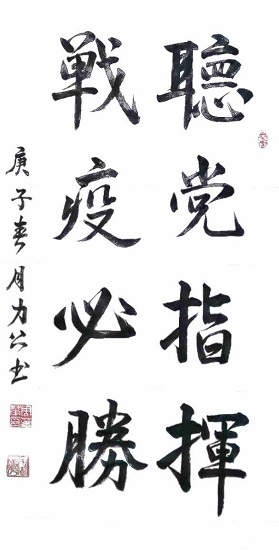 聽党指揮
戰疫必勝
庚子春月力公书